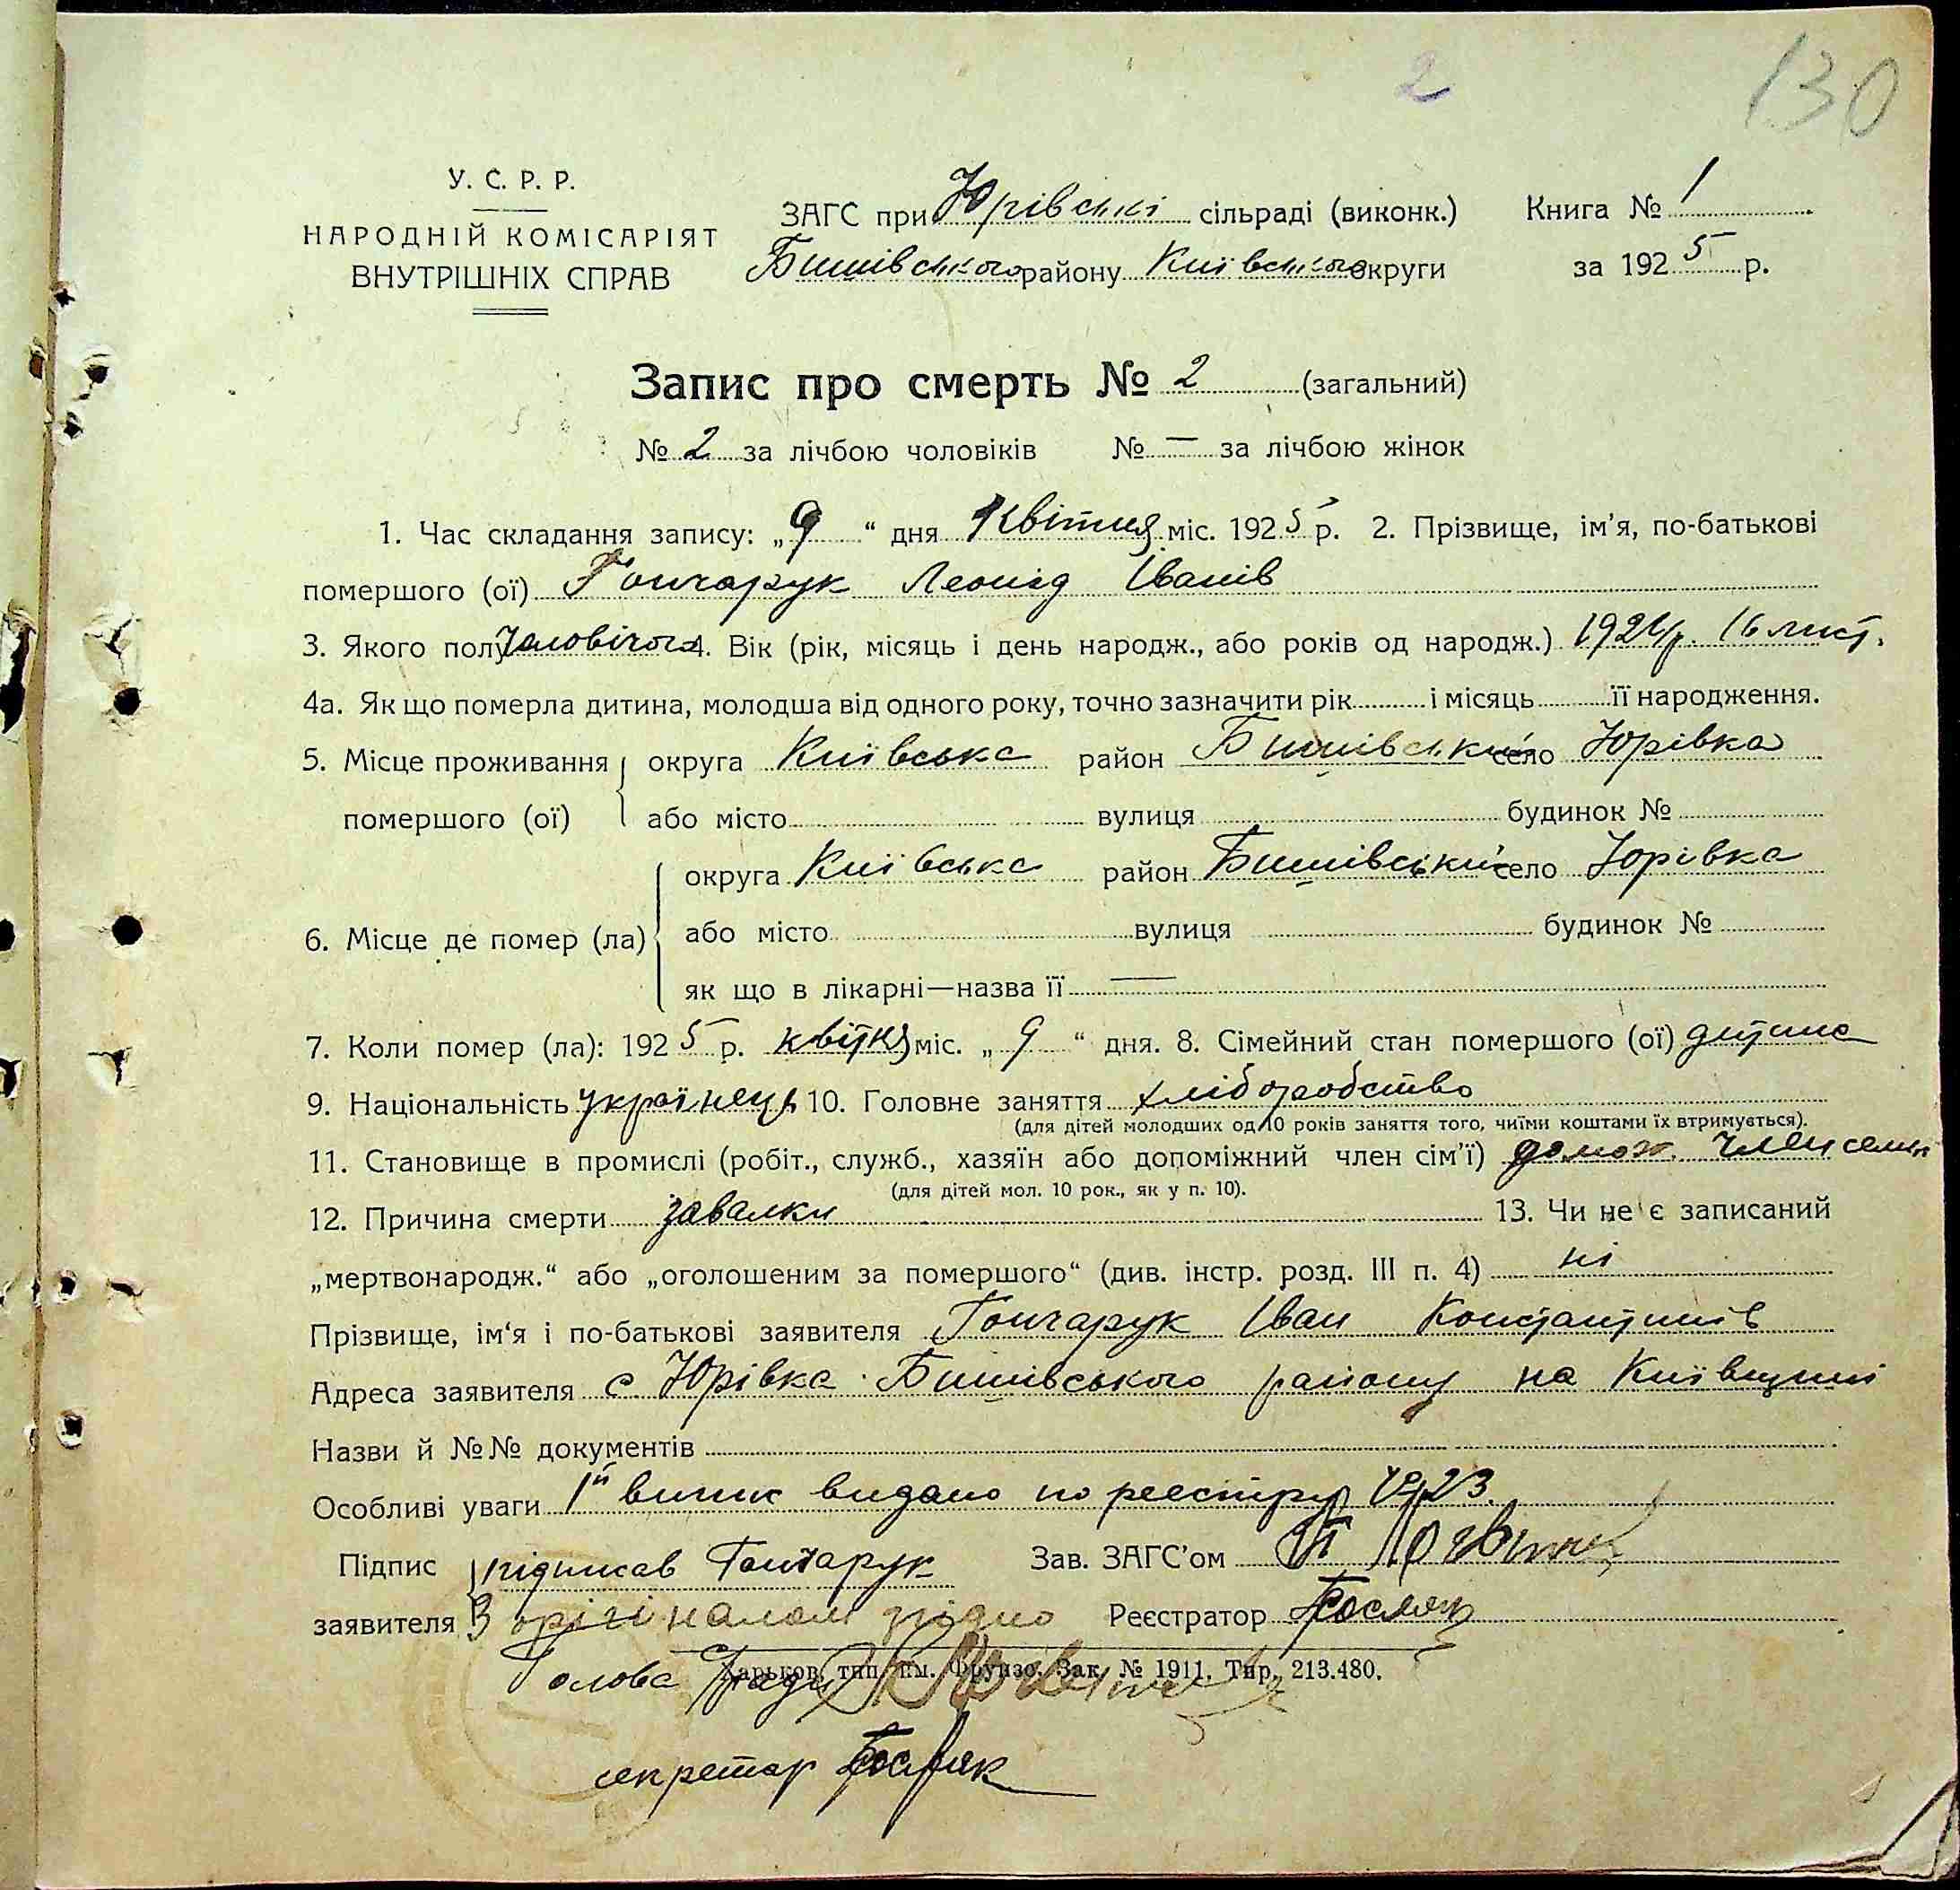 2
130
У. С. Р. Р.
НАРОДНІЙ КОМІСАРІЯТ
ВНУТРІШНІХ СПРАВ
ЗАГС при Юрівській сільраді (виконк.) Книга № 1
Бишівського району Київської округи за 1925 р.
Запис про смерть № 2 (загальний)
№ 2 за лічбою чоловіків № — за лічбою жінок
1. Час складання запису: „9“ дня Квітня міс. 1925 р. 2. Прізвище, ім'я, по-батькові
помершого (ої) Гончарук Леонід Іванів
3. Якого полу Чоловічого 4. Вік (рік, місяць і день народж., або років од народж.) 1924 р. 16 лист.
4а. Як що померла дитина, молодша від одного року, точно зазначити рік і місяць її народження.
5. Місце проживання округа Київська район Бишівський село Юрівка
помершого (ої) або місто вулиця будинок №
округа Київська район Бишівський село Юрівка
6. Місце де помер (ла) або місто вулиця будинок №
як що в лікарні—назва її —
7. Коли помер (ла): 1925 р. квітня міс. „9“ дня. 8. Сімейний стан помершого (ої) дитина
9. Національність українець 10. Головне заняття хліборобство
(для дітей молодших од 10 років заняття того, чиїми коштами їх втримується).
11. Становище в промислі (робіт., служб., хазяїн або допоміжний член сім'ї) член семьи
(для дітей мол. 10 рок., як у п. 10).
12. Причина смерти завалки 13. Чи не є записаний
„мертвонародж.“ або „оголошеним за помершого“ (див. інстр. розд. III п. 4) ні
Прізвище, ім'я і по-батькові заявителя Гончарук Іван Константинів
Адреса заявителя с. Юрівка Бишівського району на Київщині
Назви й №№ документів
Особливі уваги 1й випис видано по реєстру № 23.
Підпис підписав Гончарук Зав. ЗАГС'ом
заявителя З орігіналом згідно Реєстратор
Харьков, тип. им. Фрунзе. Зак. № 1911. Тир. 213.480.
Голова с/ради
секретар